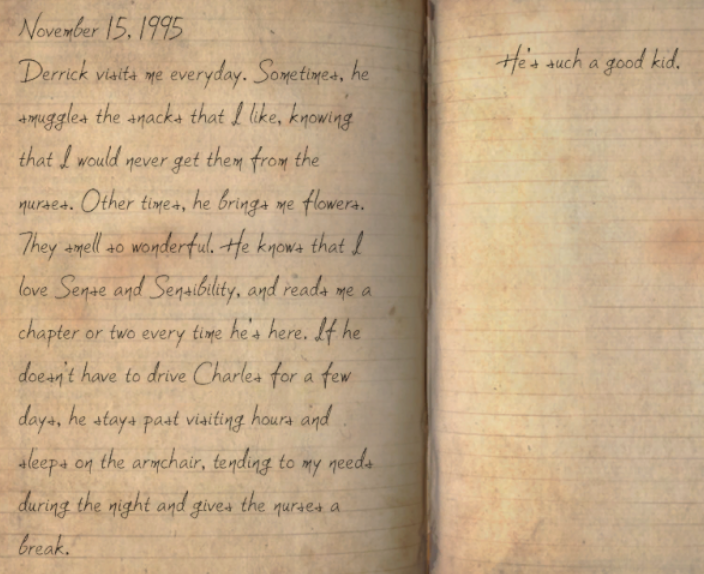 November 15, 1995
Derrick visits me everyday. Sometimes, he
smuggles the snacks that I like, knowing
that I would never get them from the
nurses. Other times, he brings me flowers.
They smell so wonderful. He knows that I
love Sense and Sensibility, and reads me a
chapter or two every time he's here. If he
doesn't have to drive Charles for a few
days, he stays past visiting hours and
sleeps on the armchair, tending to my needs
during the night and gives the nurses a
break.
He's such a good kid.